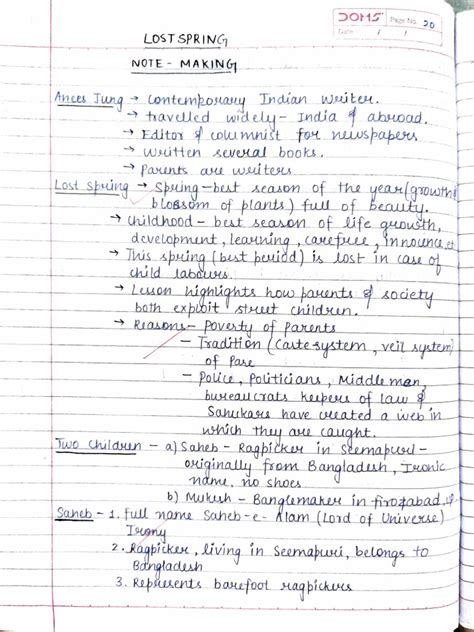 DOMS Page No. 20
Date / /
LOST SPRING
NOTE - MAKING
Anees Jung → Contemporary Indian Writer.
→ travelled widely - India & abroad.
→ Editor & columnist for newspapers
→ Written several books.
→ Parents are writers
Lost Spring → Spring - best season of the year (growth &
blossom of plants) full of beauty.
→ Childhood - best season of life growth,
development, learning, carefree, innounce, etc
→ This spring (best period) is lost in case of
child labours.
→ Lesson highlights how parents & society
both exploit street children.
→ Reasons - Poverty of Parents
- Tradition (Caste system, veil system)
of Past
- Police, Politicians, Middle man,
bureaucrats keepers of law &
Sahukars have created a web in
which they are caught.
Two Children - a) Saheb - Ragpicker in Seemapuri -
originally from Bangladesh, Ironic
name, no shoes
b) Mukesh - Banglemaker in firozabad,
Saheb - 1. full name Saheb-e-Alam (Lord of Universe)
Irony
2. Ragpicker, living in Seemapuri, belongs to
Bangladesh
3. Represents barefoot ragpickers